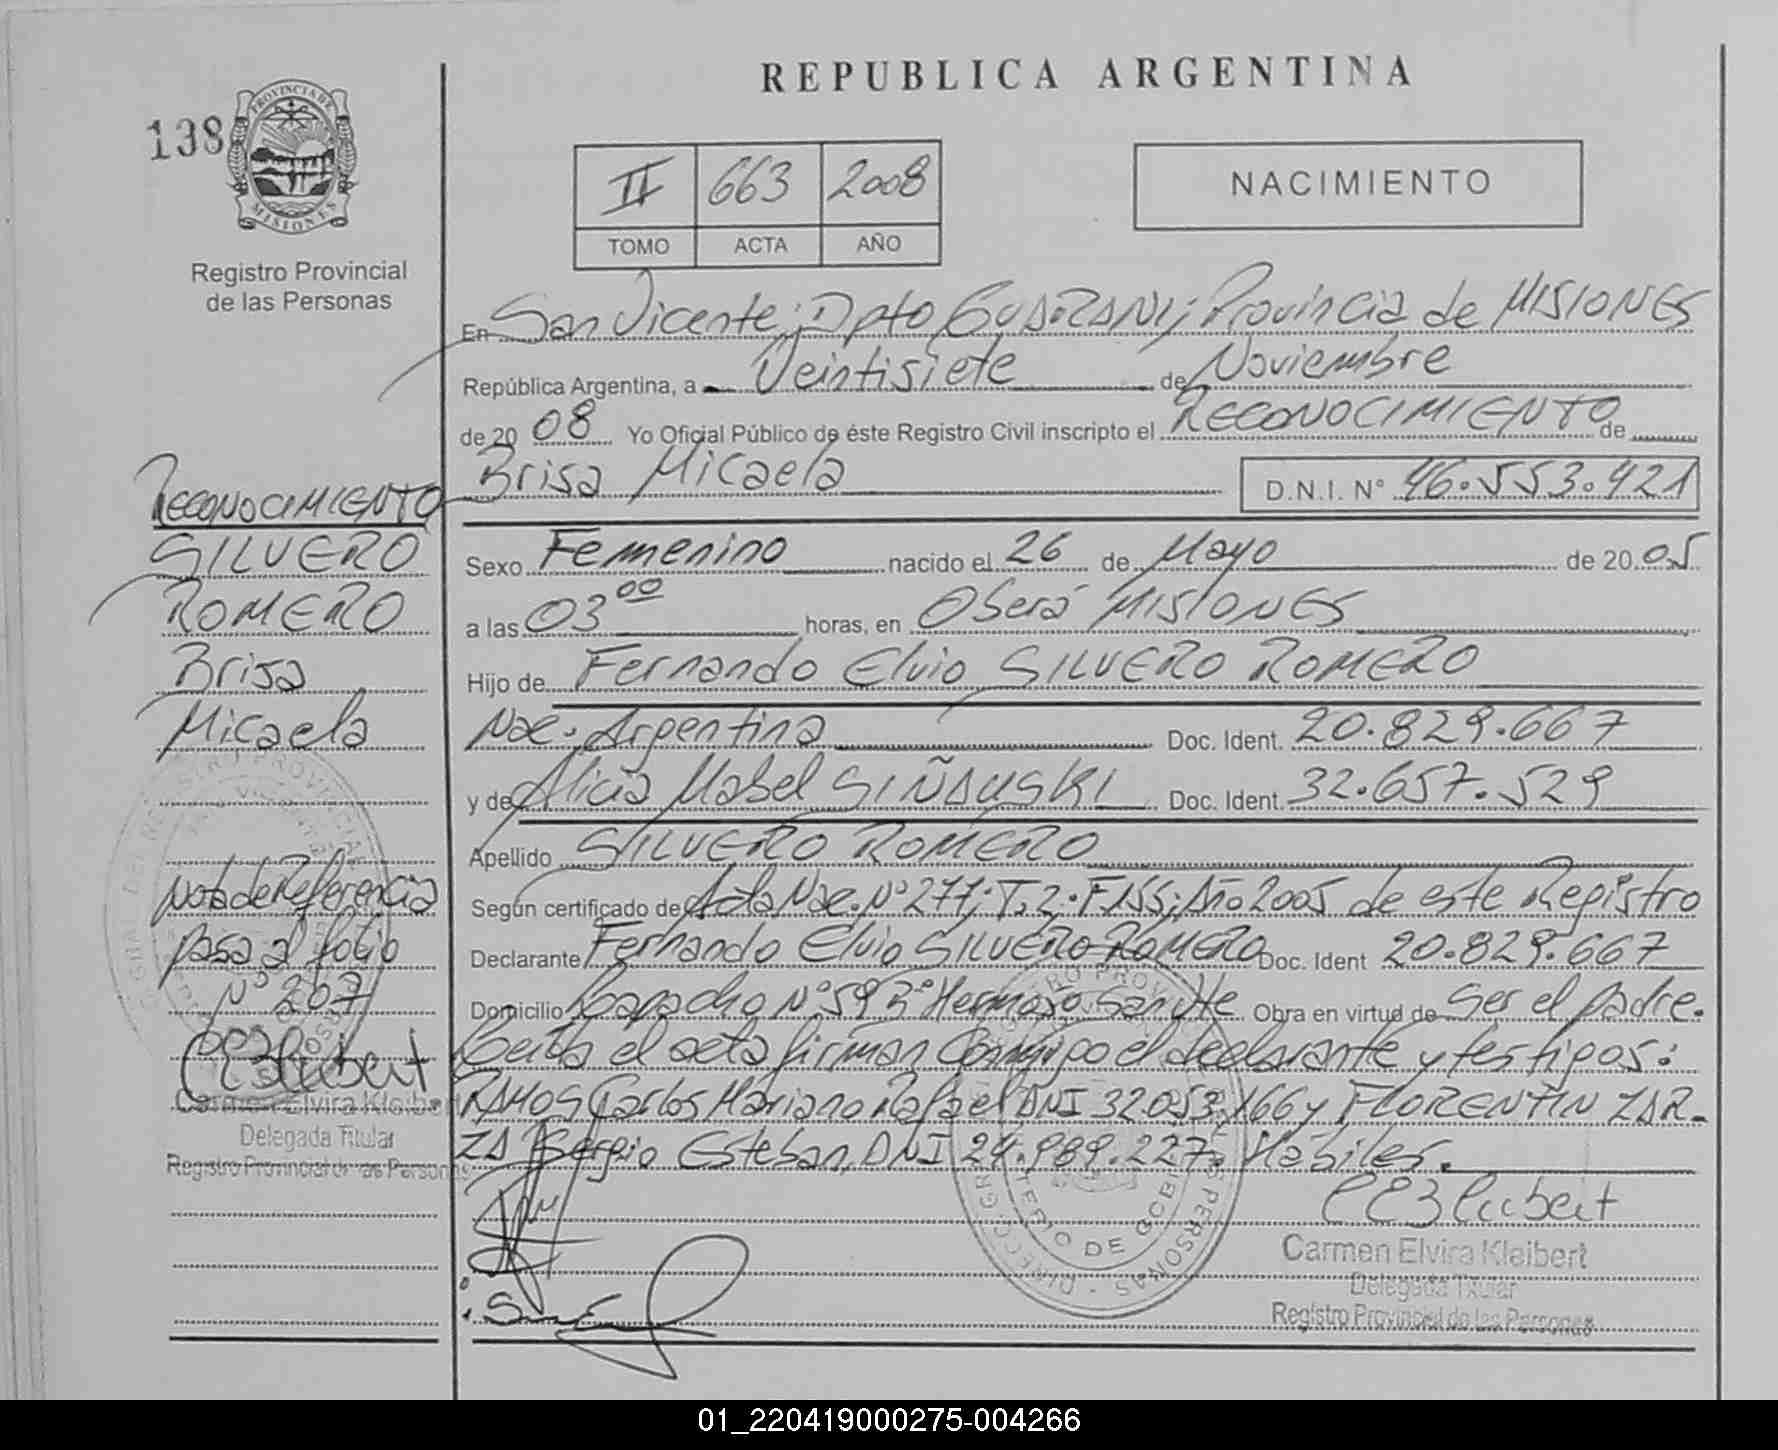 REPUBLICA ARGENTINA
138
PROVINCIA DE
MISIONES
Registro Provincial
de las Personas
II 663 2008
TOMO ACTA AÑO
NACIMIENTO
En San Vicente; Dpto GUARANI; Provincia de MISIONES
República Argentina, a Veintisiete de Noviembre
de 20 08 Yo Oficial Público de éste Registro Civil inscripto el RECONOCIMIENTO de
Brisa Micaela D.N.I. N° 46.553.421
Sexo Femenino nacido el 26 de Mayo de 20 05
a las 03 00 horas, en Oberá MISIONES
Hijo de Fernando Elvio SILVERO ROMERO
Nac. Argentina Doc. Ident. 20.829.667
y de Alicia Mabel SIÑAUSKI Doc. Ident. 32.657.529
Apellido SILVERO ROMERO
Según certificado de Acta Nac. N° 277; T. 2. F.155; Año 2005 de este Registro
Declarante Fernando Elvio SILVERO ROMERO Doc. Ident 20.829.667
Domicilio N° 59 B° Hermoso San Vte. Obra en virtud de Ser el padre.
el acta firman Conmigo el declarante y testigos:
RAMOS Carlos Mariano Rafael DNI 32.053.166 y FLORENTIN ZAR-
ZA Sergio Esteban, DNI 24.989.227. Hábiles.
Carmen Elvira Kleibert
Delegada Titular
Registro Provincial de las Personas
RECONOCIMIENTO
SILVERO
ROMERO
Brisa
Micaela
Nota de Referencia
pasa al folio
N° 267
Carmen Elvira Kleiber
Delegada Titular
Registro Provincial de las Personas
01_220419000275-004266